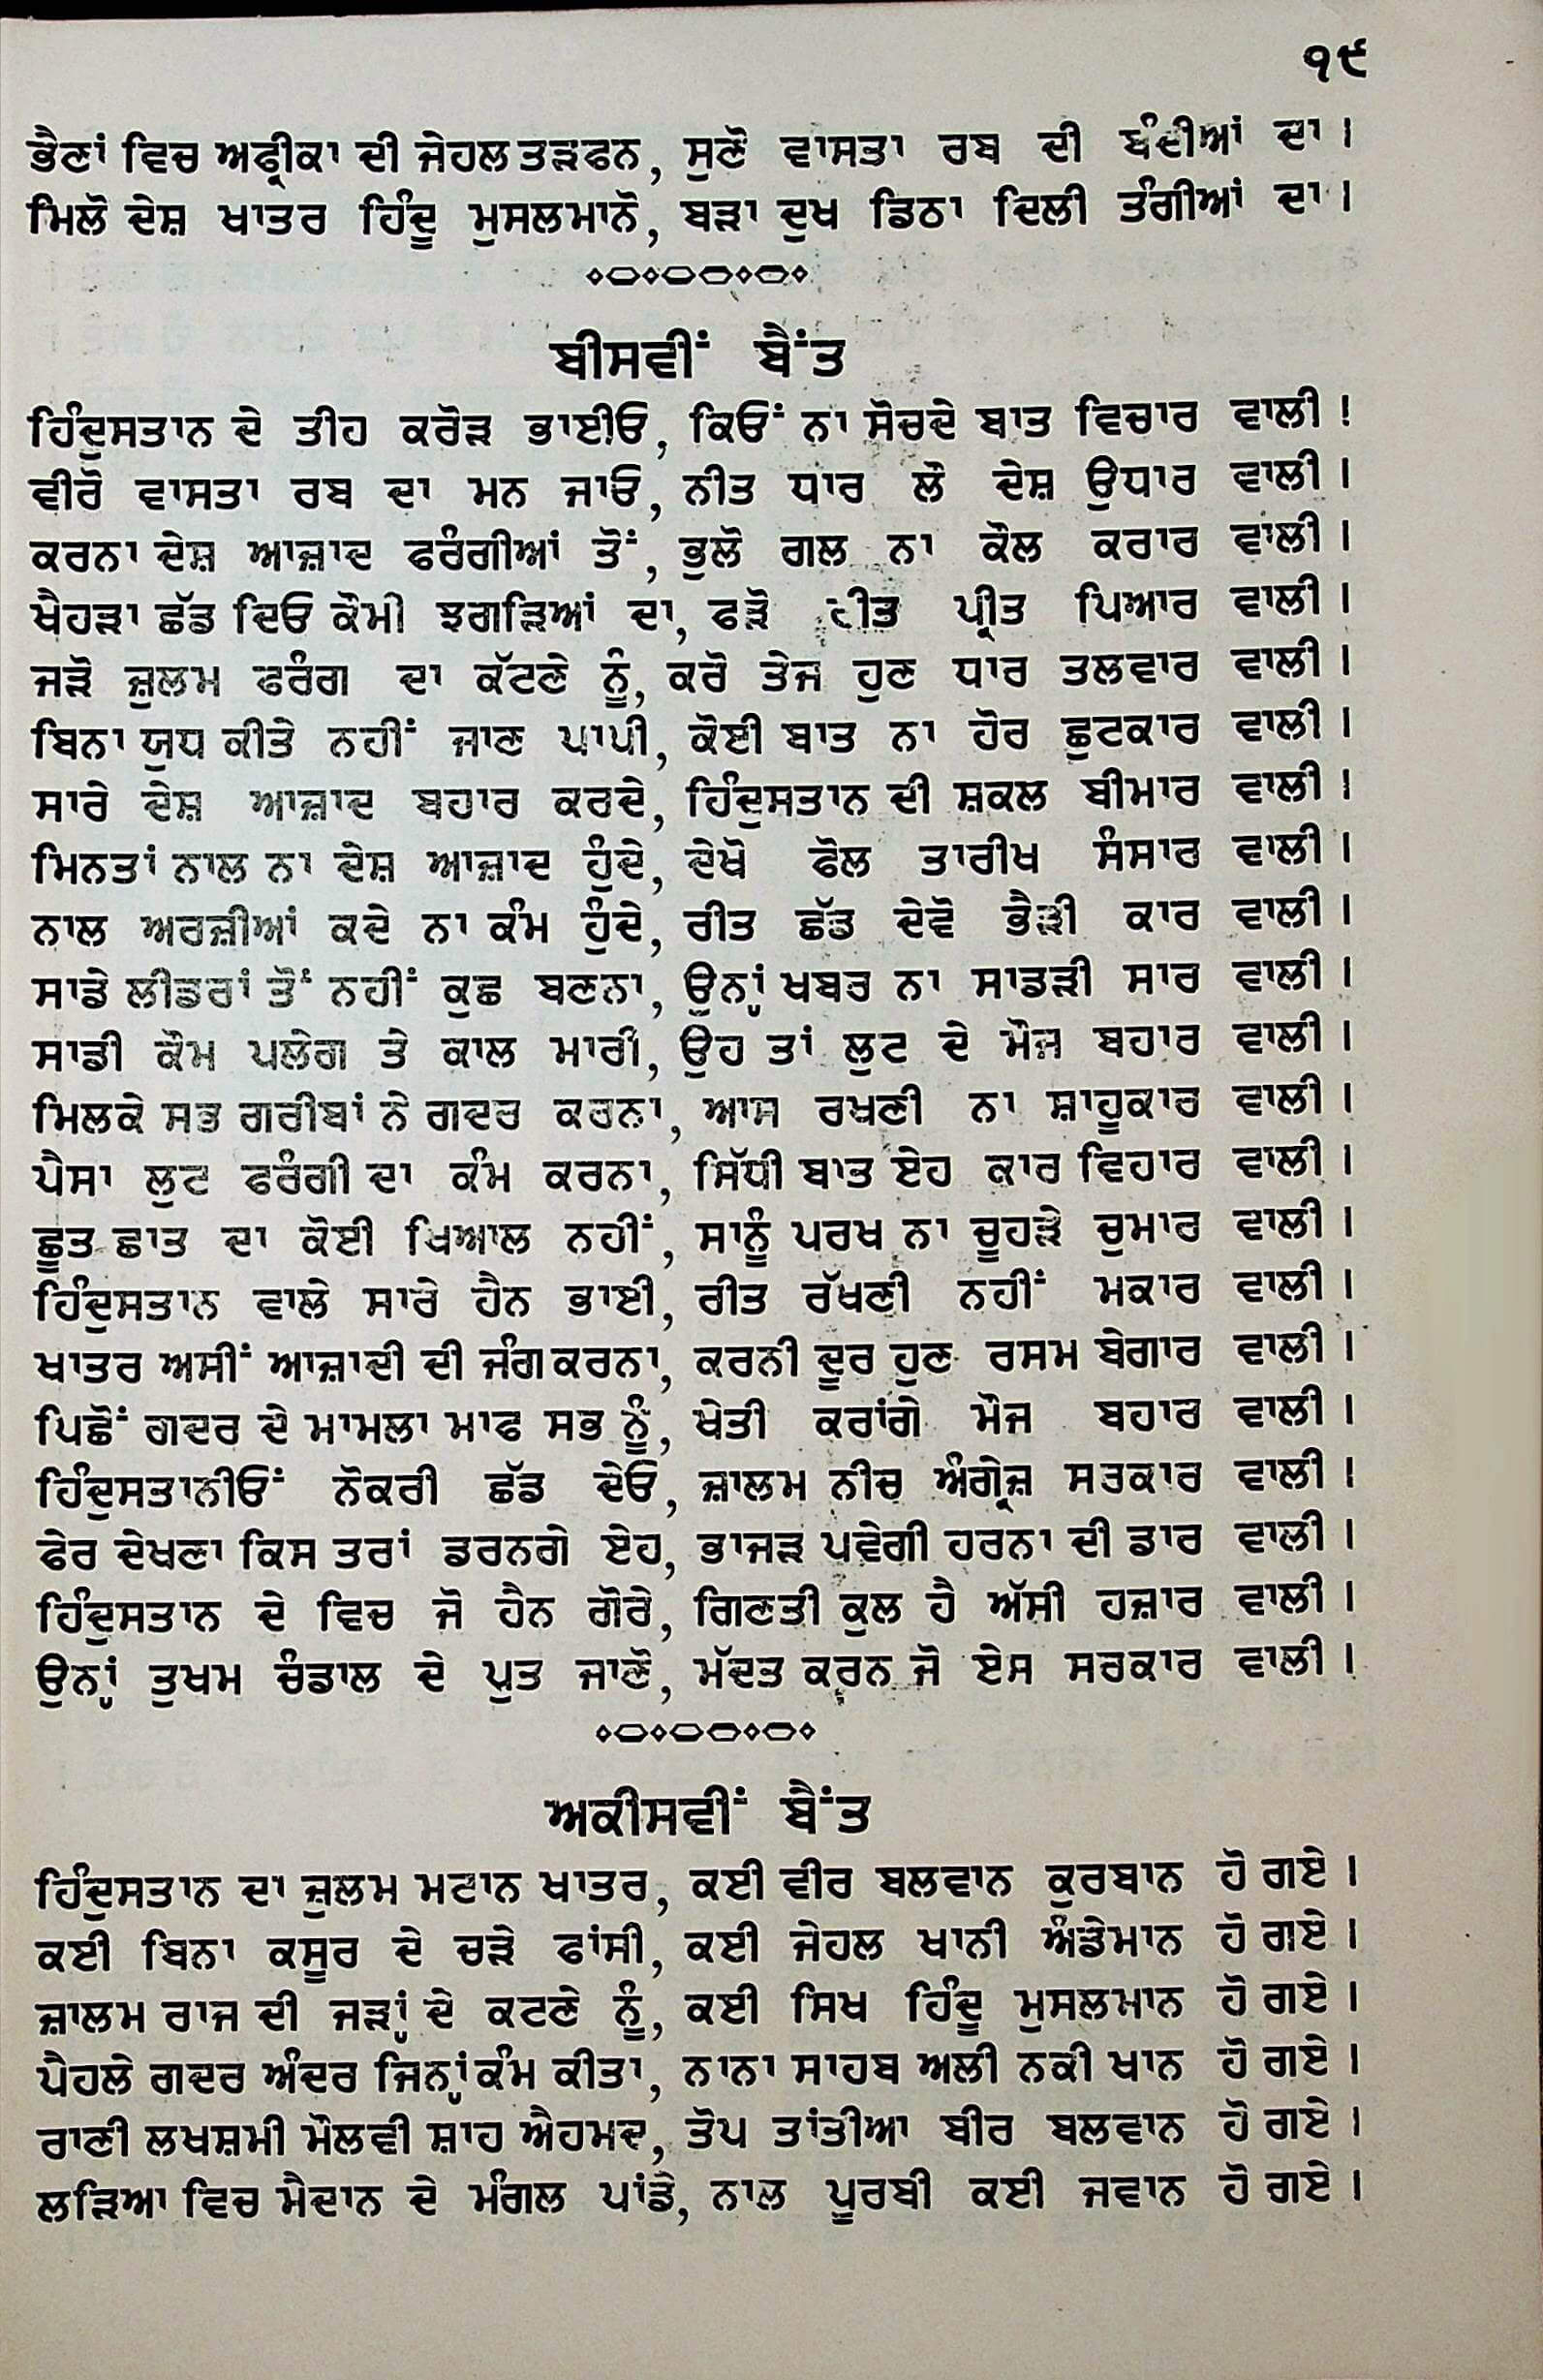 ੧੯
ਭੈਣਾਂ ਵਿਚ ਅਫ੍ਰੀਕਾ ਦੀ ਜੇਹਲ ਤੜਫਨ, ਸੁਣੋ ਵਾਸਤਾ ਰਬ ਦੀ ਬੰਦੀਆਂ ਦਾ।
ਮਿਲੋ ਦੇਸ਼ ਖਾਤਰ ਹਿੰਦੂ ਮੁਸਲਮਾਨੋ, ਬੜਾ ਦੁਖ ਡਿਠਾ ਦਿਲੀ ਤੰਗੀਆਂ ਦਾ।
ਬੀਸਵੀਂ ਬੈਂਤ
ਹਿੰਦੁਸਤਾਨ ਦੇ ਤੀਹ ਕਰੋੜ ਭਾਈਓ, ਕਿਓਂ ਨਾ ਸੋਚਦੇ ਬਾਤ ਵਿਚਾਰ ਵਾਲੀ!
ਵੀਰੋ ਵਾਸਤਾ ਰਬ ਦਾ ਮਨ ਜਾਓ, ਨੀਤ ਧਾਰ ਲੌ ਦੇਸ਼ ਉਧਾਰ ਵਾਲੀ।
ਕਰਨਾ ਦੇਸ਼ ਆਜ਼ਾਦ ਫਰੰਗੀਆਂ ਤੋਂ, ਭੁਲੋ ਗਲ ਨਾ ਕੌਲ ਕਰਾਰ ਵਾਲੀ।
ਖੈਹੜਾ ਛੱਡ ਦਿਓ ਕੌਮੀ ਝਗੜਿਆਂ ਦਾ, ਫੜੋ ਪ੍ਰੀਤ ਪਿਆਰ ਵਾਲੀ।
ਜੜੋ ਜ਼ੁਲਮ ਫਰੰਗ ਦਾ ਕੱਟਣੇ ਨੂੰ, ਕਰੋ ਤੇਜ ਹੁਣ ਧਾਰ ਤਲਵਾਰ ਵਾਲੀ।
ਬਿਨਾ ਯੁਧ ਕੀਤੇ ਨਹੀਂ ਜਾਣ ਪਾਪੀ, ਕੋਈ ਬਾਤ ਨਾ ਹੋਰ ਛੁਟਕਾਰ ਵਾਲੀ।
ਸਾਰੇ ਦੇਸ਼ ਆਜ਼ਾਦ ਬਹਾਰ ਕਰਦੇ, ਹਿੰਦੁਸਤਾਨ ਦੀ ਸ਼ਕਲ ਬੀਮਾਰ ਵਾਲੀ!
ਮਿਨਤਾਂ ਨਾਲ ਨਾ ਦੇਸ਼ ਆਜ਼ਾਦ ਹੁੰਦੇ, ਦੇਖੋ ਫੋਲ ਤਾਰੀਖ ਸੰਸਾਰ ਵਾਲੀ।
ਨਾਲ ਅਰਜ਼ੀਆਂ ਕਦੇ ਨਾ ਕੰਮ ਹੁੰਦੇ, ਰੀਤ ਛੱਡ ਦੇਵੋ ਭੈੜੀ ਕਾਰ ਵਾਲੀ।
ਸਾਡੇ ਲੀਡਰਾਂ ਤੋਂ ਨਹੀਂ ਕੁਛ ਬਣਨਾ, ਉਨ੍ਹਾਂ ਖਬਰ ਨਾ ਸਾਡੜੀ ਸਾਰ ਵਾਲੀ।
ਸਾਡੀ ਕੌਮ ਪਲੇਗ ਤੇ ਕਾਲ ਮਾਰੀ, ਉਹ ਤਾਂ ਲੁਟ ਦੇ ਮੌਜ ਬਹਾਰ ਵਾਲੀ।
ਮਿਲਕੇ ਸਭ ਗਰੀਬਾਂ ਨੇ ਗਦਰ ਕਰਨਾ, ਆਸ ਰਖਣੀ ਨਾ ਸ਼ਾਹੂਕਾਰ ਵਾਲੀ।
ਪੈਸਾ ਲੁਟ ਫਰੰਗੀ ਦਾ ਕੰਮ ਕਰਨਾ, ਸਿੱਧੀ ਬਾਤ ਏਹ ਕਾਰ ਵਿਹਾਰ ਵਾਲੀ।
ਛੂਤ ਛਾਤ ਦਾ ਕੋਈ ਖਿਆਲ ਨਹੀਂ, ਸਾਨੂੰ ਪਰਖ ਨਾ ਚੂਹੜੇ ਚੁਮਾਰ ਵਾਲੀ।
ਹਿੰਦੁਸਤਾਨ ਵਾਲੇ ਸਾਰੇ ਹੈਨ ਭਾਈ, ਰੀਤ ਰੱਖਣੀ ਨਹੀਂ ਮਕਾਰ ਵਾਲੀ।
ਖਾਤਰ ਅਸੀਂ ਆਜ਼ਾਦੀ ਦੀ ਜੰਗ ਕਰਨਾ, ਕਰਨੀ ਦੂਰ ਹੁਣ ਰਸਮ ਬੇਗਾਰ ਵਾਲੀ।
ਪਿਛੋਂ ਗਦਰ ਦੇ ਮਾਮਲਾ ਮਾਫ ਸਭ ਨੂੰ, ਖੇਤੀ ਕਰਾਂਗੇ ਮੌਜ ਬਹਾਰ ਵਾਲੀ।
ਹਿੰਦੁਸਤਾਨੀਓਂ ਨੌਕਰੀ ਛੱਡ ਦੇਓ, ਜ਼ਾਲਮ ਨੀਚ ਅੰਗ੍ਰੇਜ਼ ਸਰਕਾਰ ਵਾਲੀ!
ਫੇਰ ਦੇਖਣਾ ਕਿਸ ਤਰਾਂ ਡਰਨਗੇ ਏਹ, ਭਾਜੜ ਪਵੇਗੀ ਹਰਨਾ ਦੀ ਡਾਰ ਵਾਲੀ।
ਹਿੰਦੁਸਤਾਨ ਦੇ ਵਿਚ ਜੋ ਹੈਨ ਗੋਰੇ, ਗਿਣਤੀ ਕੁਲ ਹੈ ਅੱਸੀ ਹਜ਼ਾਰ ਵਾਲੀ।
ਉਨ੍ਹਾਂ ਤੁਖਮ ਚੰਡਾਲ ਦੇ ਪੁਤ ਜਾਣੋ, ਮੱਦਤ ਕਰਨ ਜੋ ਏਸ ਸਰਕਾਰ ਵਾਲੀ।
ਅਕੀਸਵੀਂ ਬੈਂਤ
ਹਿੰਦੁਸਤਾਨ ਦਾ ਜ਼ੁਲਮ ਮਟਾਨ ਖਾਤਰ, ਕਈ ਵੀਰ ਬਲਵਾਨ ਕੁਰਬਾਨ ਹੋ ਗਏ।
ਕਈ ਬਿਨਾ ਕਸੂਰ ਦੇ ਚੜੇ ਫਾਂਸੀ, ਕਈ ਜੇਹਲ ਖਾਨੀ ਅੰਡੇਮਾਨ ਹੋ ਗਏ।
ਜ਼ਾਲਮ ਰਾਜ ਦੀ ਜੜ੍ਹਾਂ ਦੇ ਕਟਣੇ ਨੂੰ, ਕਈ ਸਿਖ ਹਿੰਦੂ ਮੁਸਲਮਾਨ ਹੋ ਗਏ।
ਪੈਹਲੇ ਗਦਰ ਅੰਦਰ ਜਿਨ੍ਹਾਂ ਕੰਮ ਕੀਤਾ, ਨਾਨਾ ਸਾਹਬ ਅਲੀ ਨਕੀ ਖਾਨ ਹੋ ਗਏ।
ਰਾਣੀ ਲਖਸ਼ਮੀ ਮੌਲਵੀ ਸ਼ਾਹ ਐਹਮਦ, ਤੋਪ ਤਾਂਤੀਆ ਬੀਰ ਬਲਵਾਨ ਹੋ ਗਏ।
ਲੜਿਆ ਵਿਚ ਮੈਦਾਨ ਦੇ ਮੰਗਲ ਪਾਂਡੇ, ਨਾਲ ਪੂਰਬੀ ਕਈ ਜਵਾਨ ਹੋ ਗਏ।